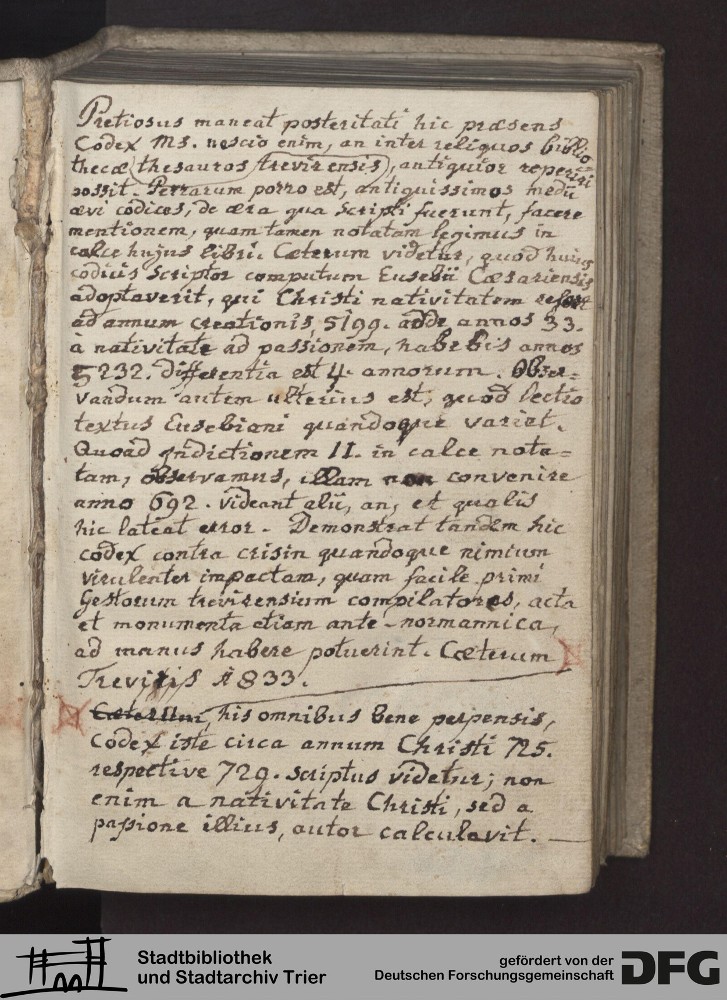 Pretiosus maneat posteritati hic præsens
Codex Ms. nescio enim, an inter reliquos biblio-
thecæ (thesauros trevirensis), antiquior reperiri
possit. Perrarum porro est, antiquissimos medii
ævi codices, de æra qua scripti fuerunt, facere
mentionem, quam tamen notatam legimus in
calce hujus libri. Cæterum videtur, quod huius
codicis scriptor computum Eusebii Cæsariensis
adoptaverit, qui Christi nativitatem
ad annum creationis, 5199. adde annos 33.
à nativitate ad passionem, habebis annos
5232. differentia est 4 annorum. Obser=
vandum autem ulterius est, quod lectio
textus Eusebiani quandoque variat.
Quoad Indictionem II. in calce nota=
tam, observamus, illam non convenire
anno 692. Videant alii, an, et qualis
hic lateat error. Demonstrat tandem hic
codex contra crisin quandoque nimium
virulenter impactam, quam facile primi
Gestorum trevirensium compilatores, acta
et monumenta etiam ante-normannica,
ad manus habere potuerint. Cæterum
Treviris 1833.
Cæterum, his omnibus bene perpensis,
Codex iste circa annum Christi 725.
respective 729. scriptus videtur; non
enim a nativitate Christi, sed a
passione illius, autor calculavit.
Stadtbibliothek
und Stadtarchiv Trier
gefördert von der
Deutschen Forschungsgemeinschaft
DFG